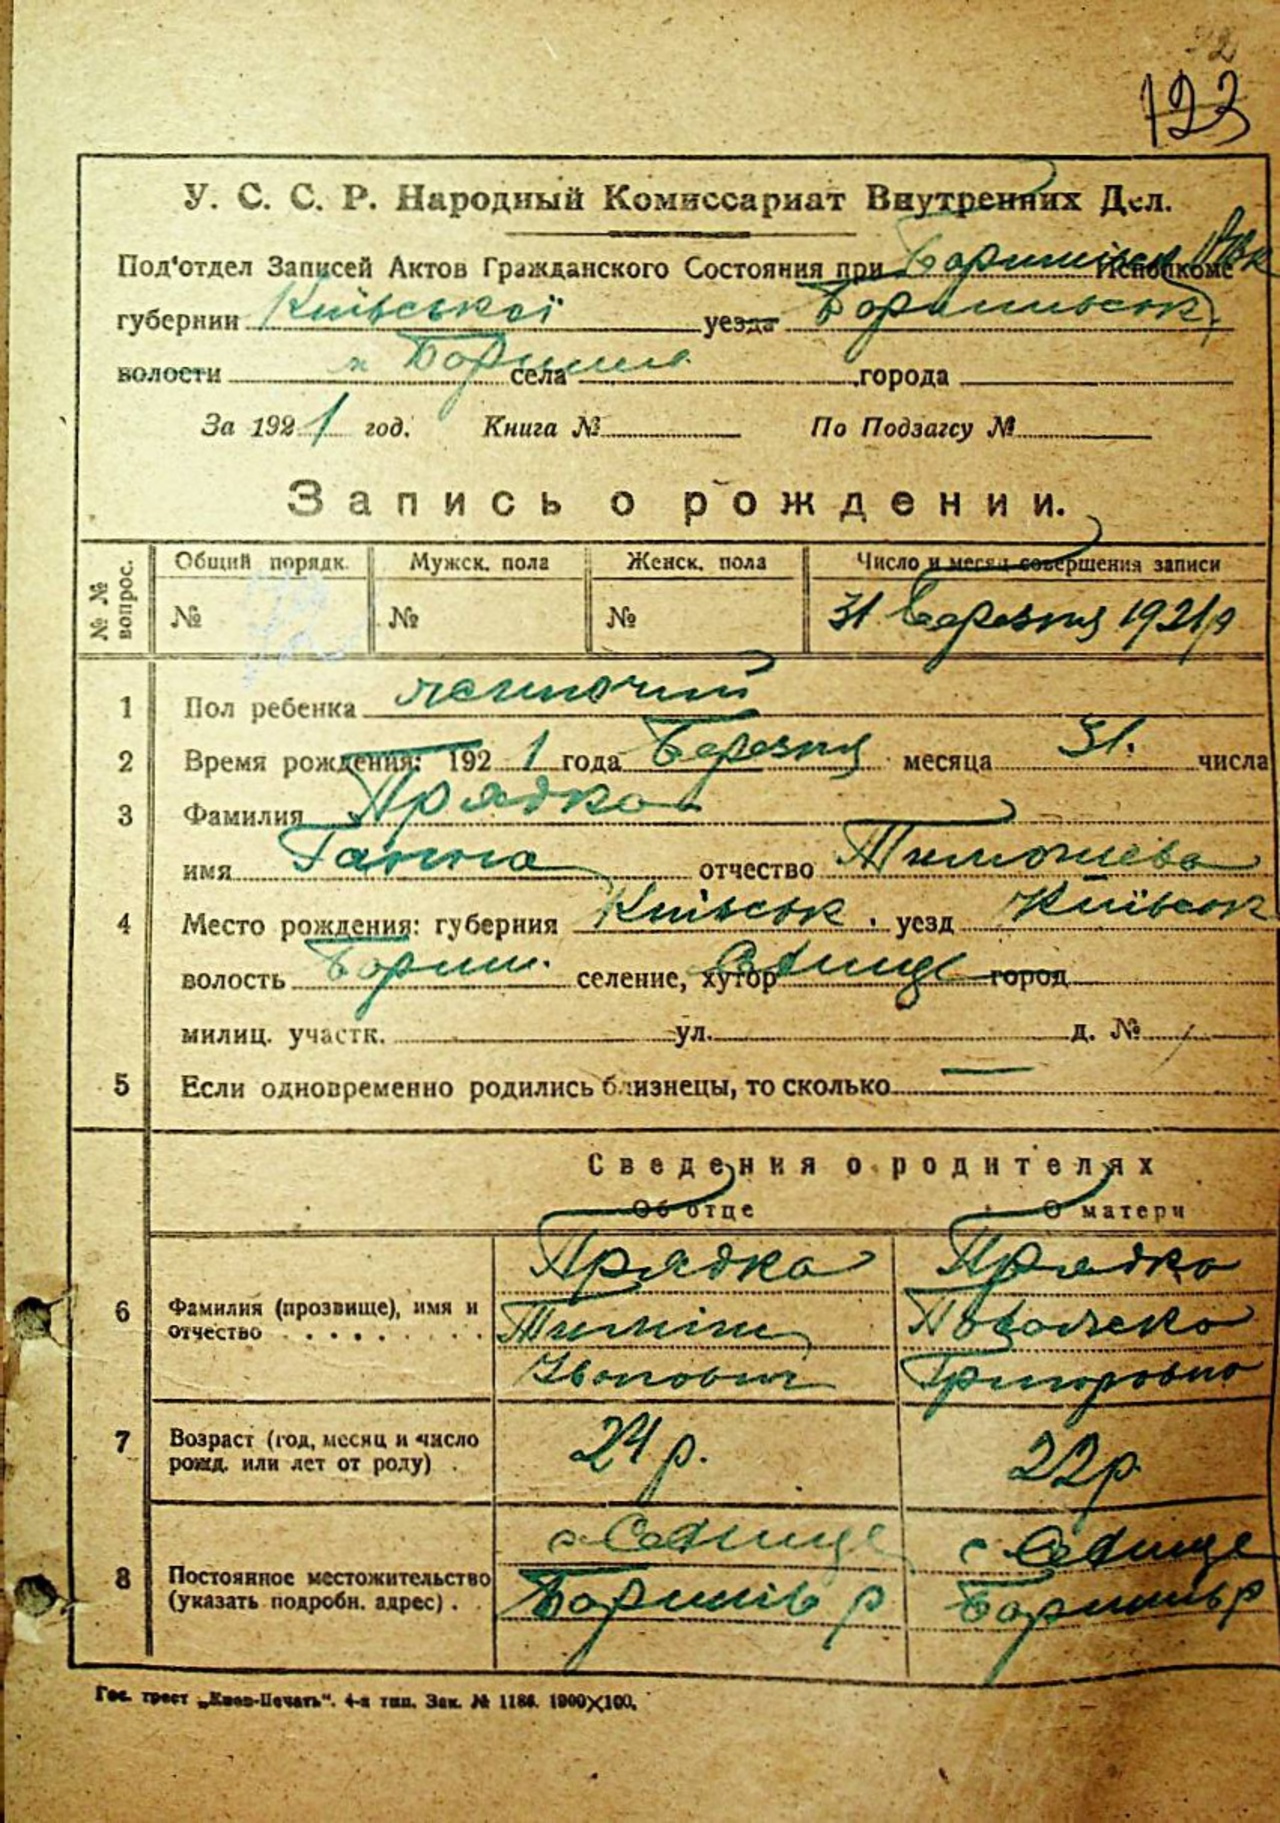 92
123
У. С. С. Р. Народный Комиссариат Внутренних Дел.
Под'отдел Записей Актов Гражданского Состояния при Исполкоме
губернии Київської уезда
волости м села города
За 1921 год. Книга № По Подзагсу №
Запись о рождении.
№ № вопрос. Общий порядк. Мужск. пола Женск. пола Число и месяц совершения записи
№ № № 31 Березня 1921 р
1 Пол ребенка жиночий
2 Время рождения: 1921 года Березня месяца 31. числа
3 Фамилия Прядка
имя Ганна отчество Тимошева
4 Место рождения: губерния Київськ. уезд Київськ
волость селение, хутор город
милиц. участк. ул. д. №
5 Если одновременно родились близнецы, то сколько —
Сведения о родителях
Об отце О матери
6 Фамилия (прозвище), имя и отчество Прядка Прядка
Тиміш
Іванович Григоровна
7 Возраст (год, месяц и число рожд. или лет от роду) . 24 р. 22 р.
8 Постоянное местожительство (указать подробн. адрес) . с с
р р
Гос. трест „Киев-Печать". 4-я тип. Зак. № 1186. 1000×100.